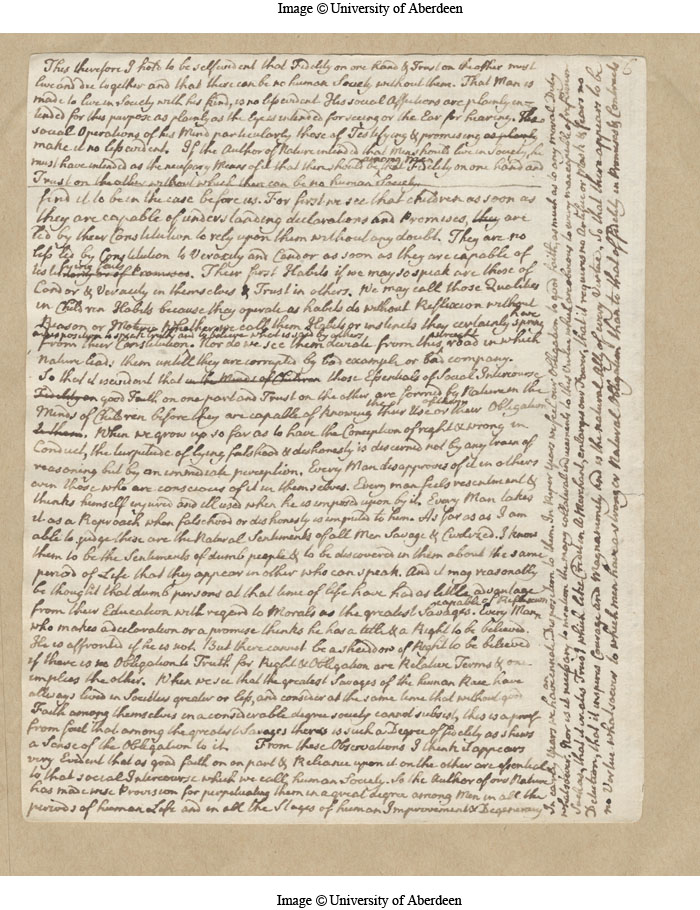 Image © University of Aberdeen
This therefore I hold to be selfevident that Fidelity on one hand & Trust on the other must
live and die together and that there can be no human Society without them. That Man is
made to live in Society with his kind, is no less evident His social Affections are plainly in-
tended for this purpose as plainly as the Eye is intended for seeing or the Ear for hearing. The
social Operations of his Mind particularly those of Testifying & promising as plainly
make it no less evident. If the Author of Nature intended that Men should live in Society, he
must have intended as the necessary Means of it that there should be among men Fidelity on one hand and
Trust on the other without which there can be no human Society.
find it to be in the case before us. For first we see that children as soon as
they are capable of understanding declarations and Promises, they are
led by their Constitution to rely upon them without any doubt. They are no
less led by Constitution to Veracity and Candor as soon as they are capable of
Their first Habits if we may so speak are those of
Candor & Veracity in themselves & Trust in others. We may call those Qualities
in Children Habits because they operate as habits do without Reflexion without
Reason or Motive. Whether we call them Habits or instincts they certainly have
a disposition to speak truth and to believe what is said by others
From their Constitution. Nor do we see them deviate from this road in which
Nature lead them untill they are corrupted by bad example or bad company.
So that it is evident that in the Minds of Children those Essentials of Social Intercourse
Fidelity or good Faith on one part and Trust on the other are formed by Nature in the
Minds of Children before they are capable of knowing their Use or their Obligation
When we grow up so far as to have the Conception of right & wrong in
Conduct, the turpitude of lying falshood & dishonesty is discerned not by any train of
reasoning but by an immediate perception. Every Man disapproves of it in others
even those who are conscious of it in themselves. Every man feels resentment &
thinks himself injured and ill used when he is imposed upon by it. Every Man takes
it as a Reproach when falshood or dishonesty is imputed to him. As far as I am
able to judge these are the Natural Sentiments of all Men Savage & Civilized. I know
them to be the Sentiments of dumb people & to be discovered in them about the same
period of Life that they appear in other who can speak. And it may reasonably
be thought that dumb persons at that time of life have had as little advantage
capable of Reflexion
from their Education with regard to Morals as the greatest Savages. Every Man
who makes a declaration or a promise thinks he has a title & a Right to be believed.
He is affronted if he is not. But there cannot be a shaddow of Right to be believed
if there is no Obligation to Truth for Right & Obligation are Relative Terms & one
implies the other. When we see that the greatest Savages of the human Race have
allways lived in Societies greater or less, and consider at the same time that without good
Faith among themselves in a considerable degree society cannot subsist, this is a proof
from fact that among the greatest Savages there is such a Degree of Fidelity as shews
a Sense of the Obligation to it. From these Observations I think it appears
very Evident that as good faith on on part & Reliance upon it on the other are essential
to that social Intercourse which we call human Society. So the Author of our Nature
has made wise Provision for perpetuating them in a great degree among Men in all the
periods of human Life and in all the Stages of human Improvement & Degeneracy
In early Years we have an innate Disposition to them. In riper Years we feel our Obligation to good faith, as much as to any moral Duty
whatsoever. Nor is it necessary to mention the many collateral inducements to this Virtue
Such as, that it creates Trust which like Credit in a Merchant, enlarges our Power, that it requires no Artifice or Mask & fears no
Detection, that it inspires Courage and Magnanimity and is the natural Ally of every Virtue. So that there appears to be
no Virtue whatsoever to which men have a stronger Natural Obligation than to that of Fidelity in Promises & Contracts
Image © University of Aberdeen